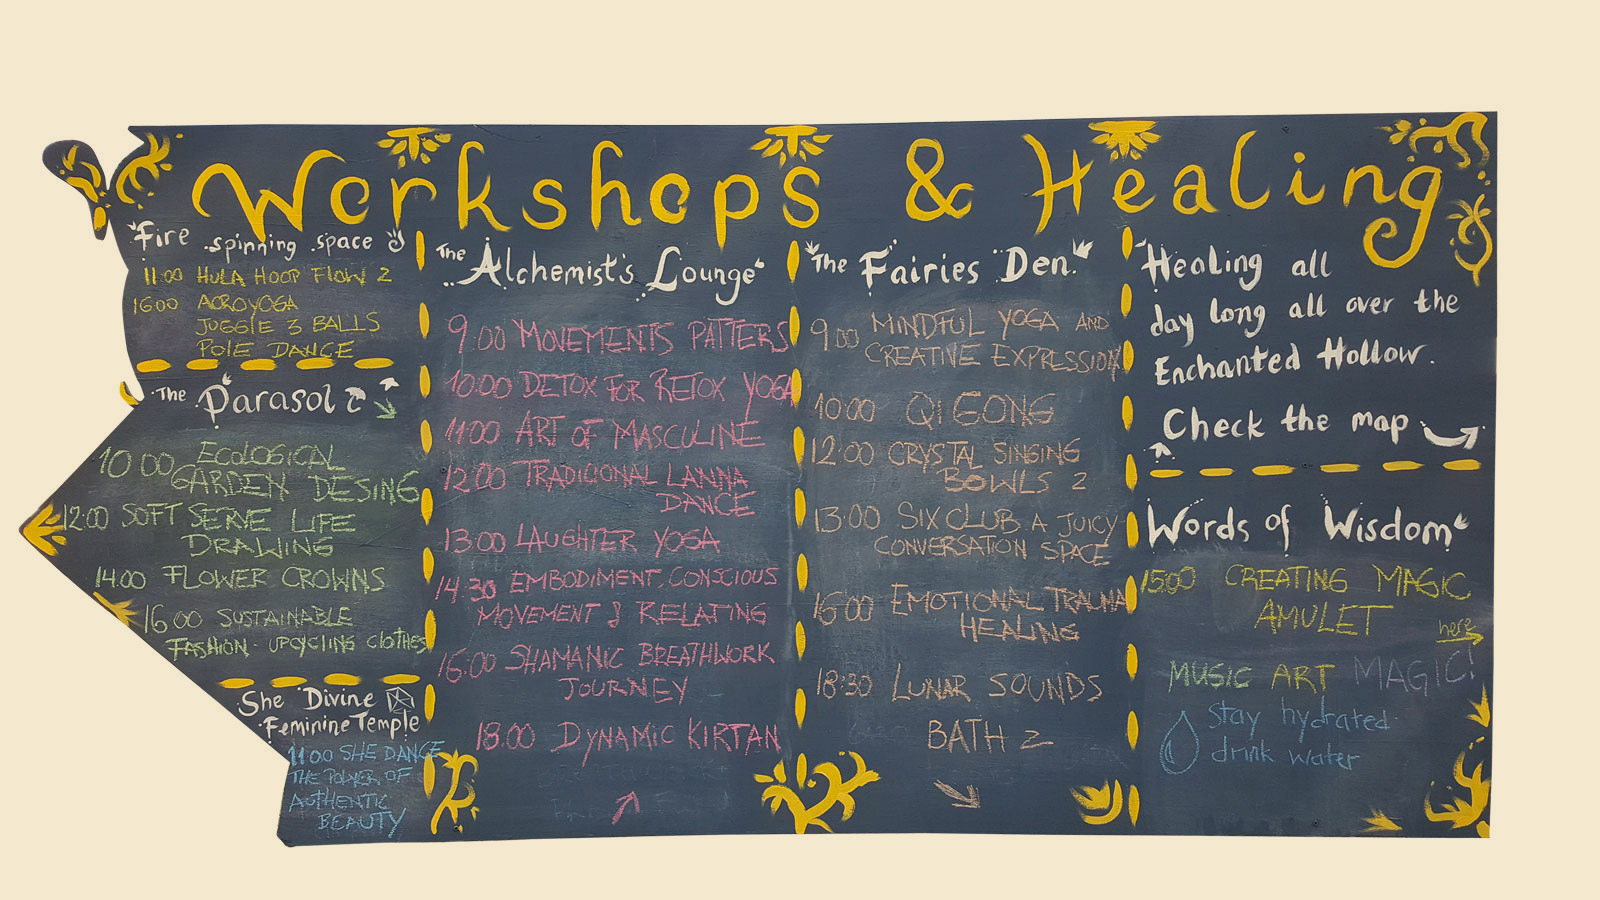 Workshops & Healing
Fire spinning space
11:00 HULA HOOP FLOW 2
16:00 ACROYOGA
JUGGLE 3 BALLS
POLE DANCE
The Parasol
10:00 ECOLOGICAL
GARDEN DESING
12:00 SOFT SERVE LIFE
DRAWING
14:00 FLOWER CROWNS
16:00 SUSTAINABLE
FASHION - UPCYCLING CLOTHES
She Divine
Feminine Temple
11:00 SHE DANCE
THE POWER OF
AUTHENTIC
BEAUTY
The Alchemist's Lounge
9:00 MOVEMENTS PATTERS
10:00 DETOX FOR RETOX YOGA
11:00 ART OF MASCULINE
12:00 TRADICIONAL LANNA
DANCE
13:00 LAUGHTER YOGA
14:30 EMBODIMENT, CONSCIOUS
MOVEMENT & RELATING
16:00 SHAMANIC BREATHWORK
JOURNEY
18:00 DYNAMIC KIRTAN
The Fairies Den
9:00 MINDFUL YOGA AND
CREATIVE EXPRESSION
10:00 QI GONG
12:00 CRYSTAL SINGING
BOWLS 2
13:00 SIX CLUB A JUICY
CONVERSATION SPACE
16:00 EMOTIONAL TRAUMA
HEALING
18:30 LUNAR SOUNDS
BATH 2
Healing all
day long all over the
Enchanted Hollow.
Check the map
Words of Wisdom
15:00 CREATING MAGIC
AMULET
here
MUSIC ART MAGIC!
Stay hydrated
drink water